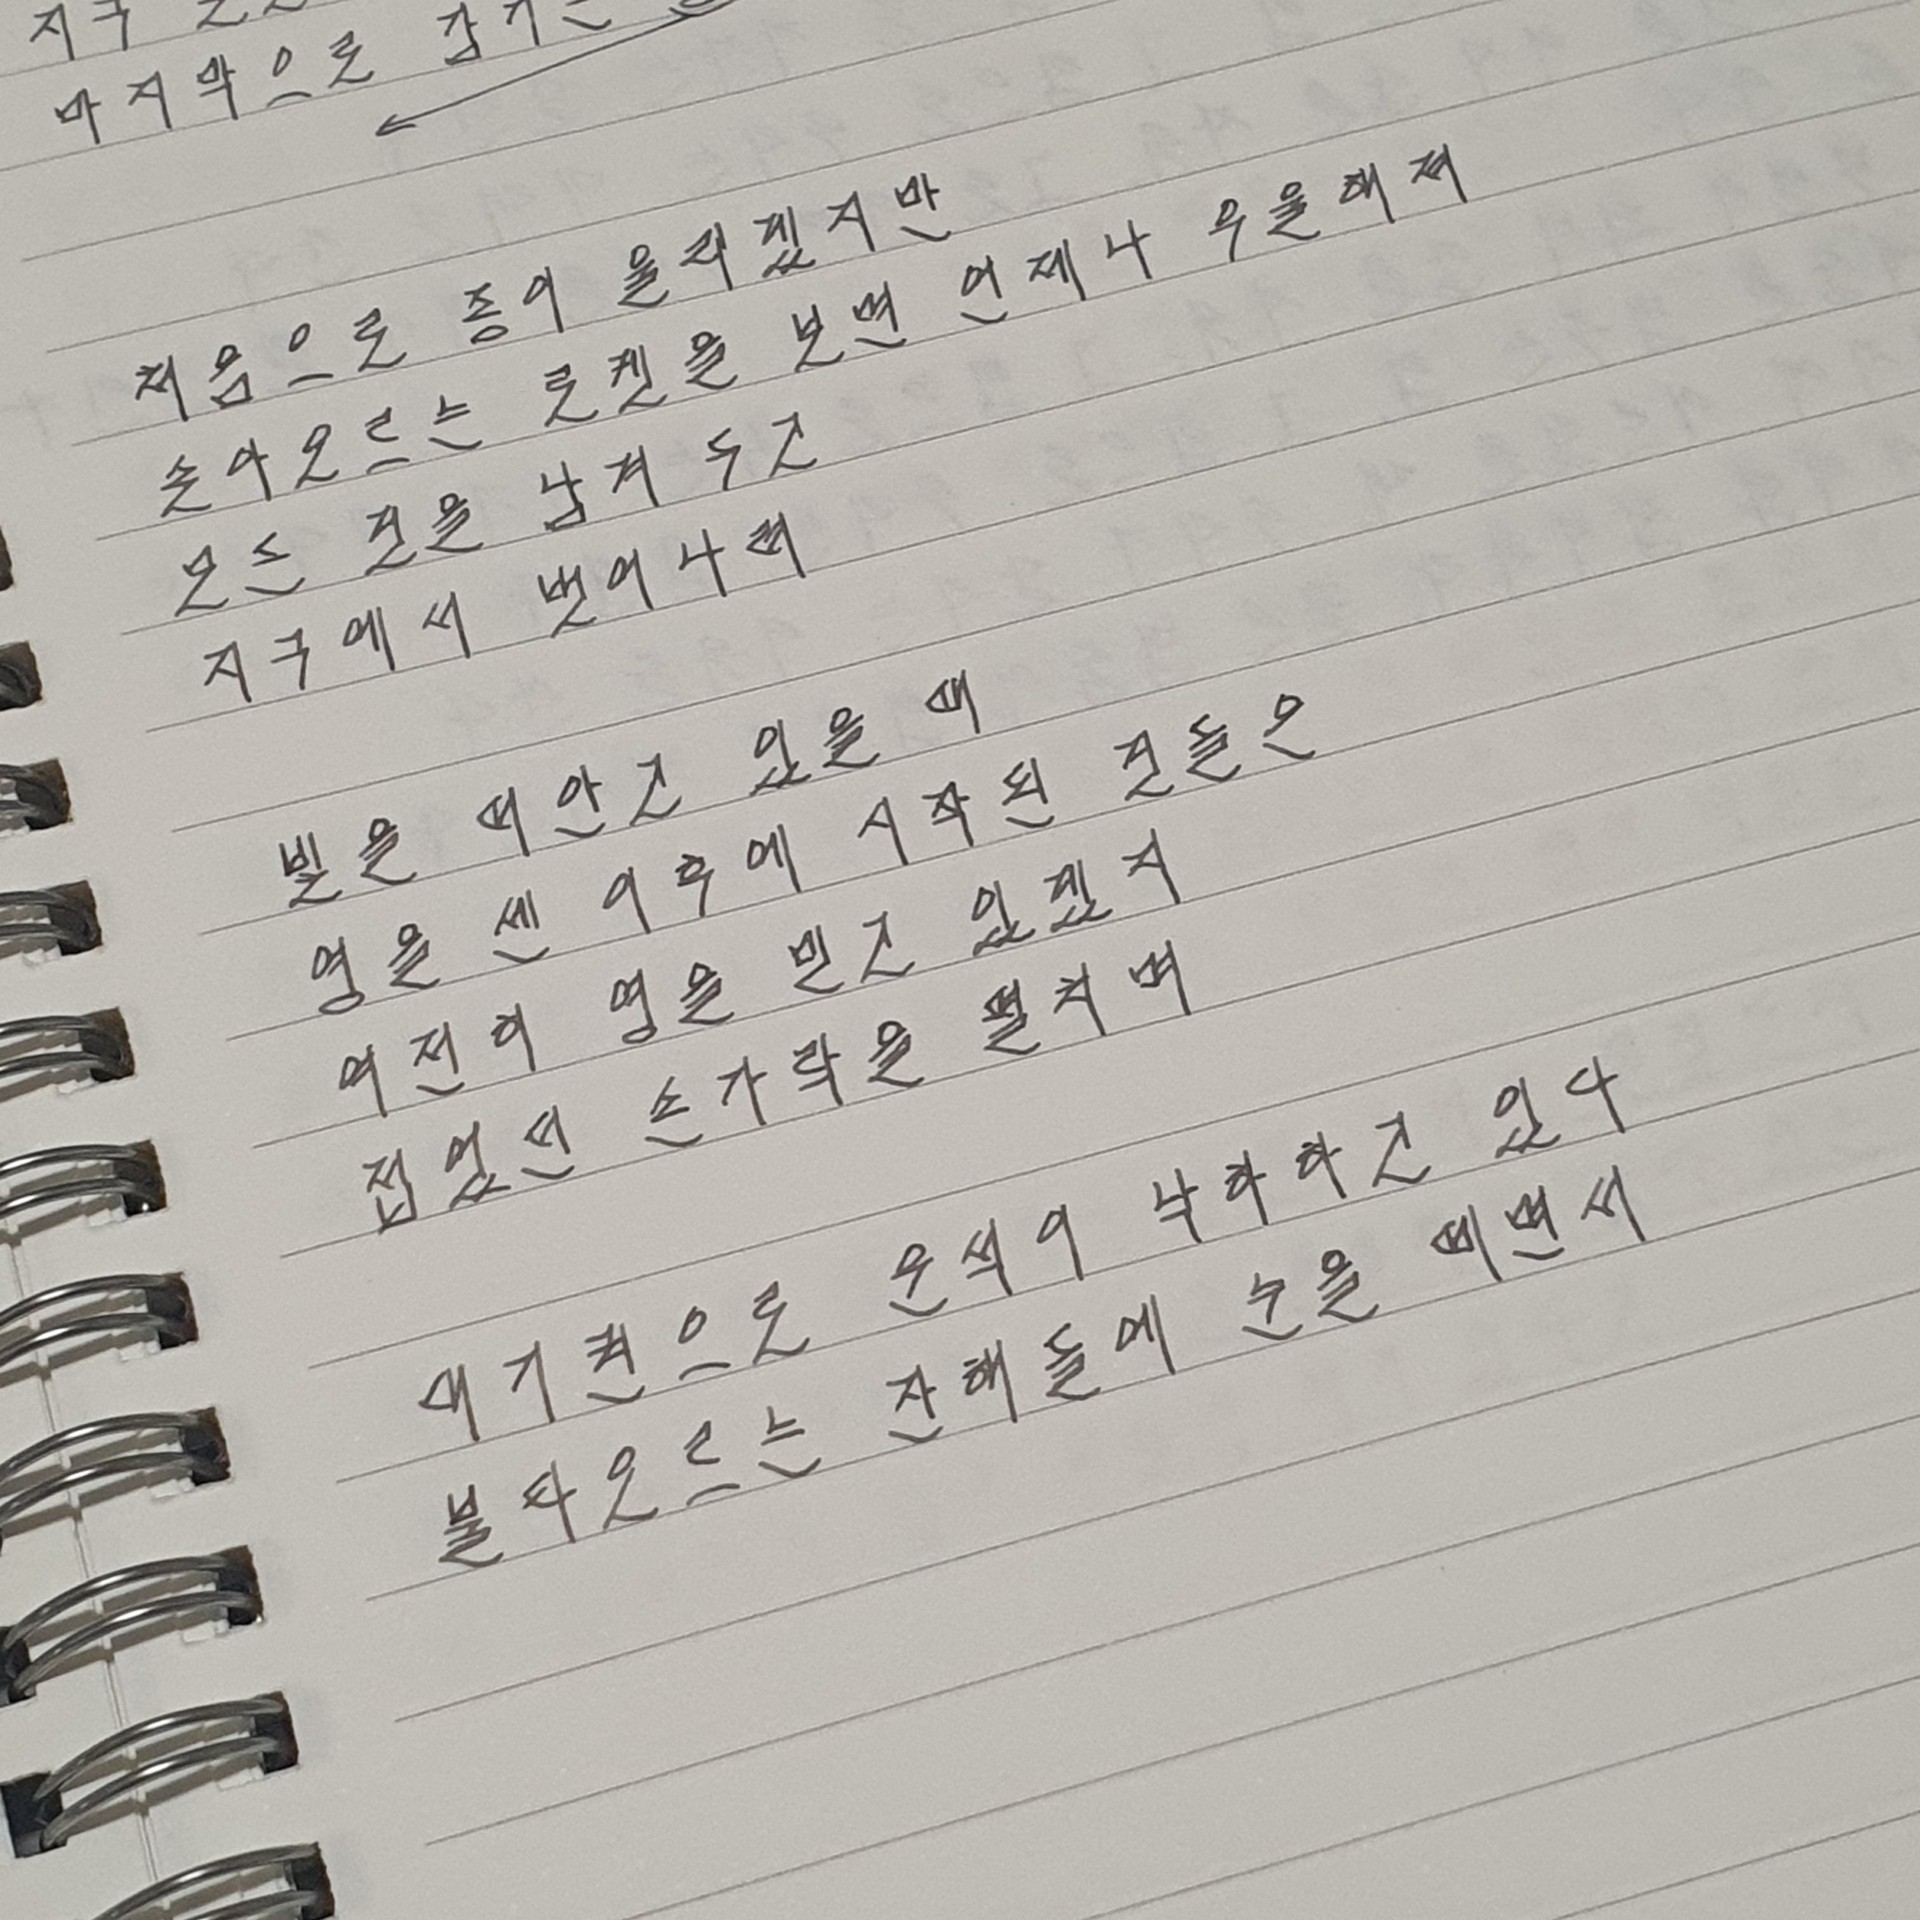 지구
마지막으로
처음으로 종이 울리겠지만
솟아오르는 로켓을 보면 언제나 우울해져
모든 것을 남겨 두고
지구에서 벗어나려
빛을 떠안고 있을 때
영을 센 이후에 시작된 것들은
여전히 영을 빌고 있겠지
접었던 손가락을 펼치며
대기권으로 운석이 낙하하고 있다
불타오르는 잔해들에 눈을 떼면서